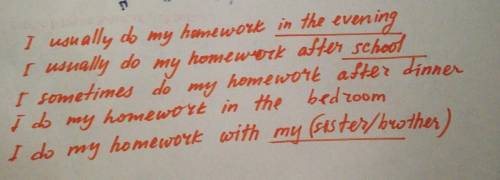 I usually do my homework in the evening
I usually do my homework after school
I sometimes do my homework after dinner
I do my homework in the bedroom
I do my homework with my (sister/brother)